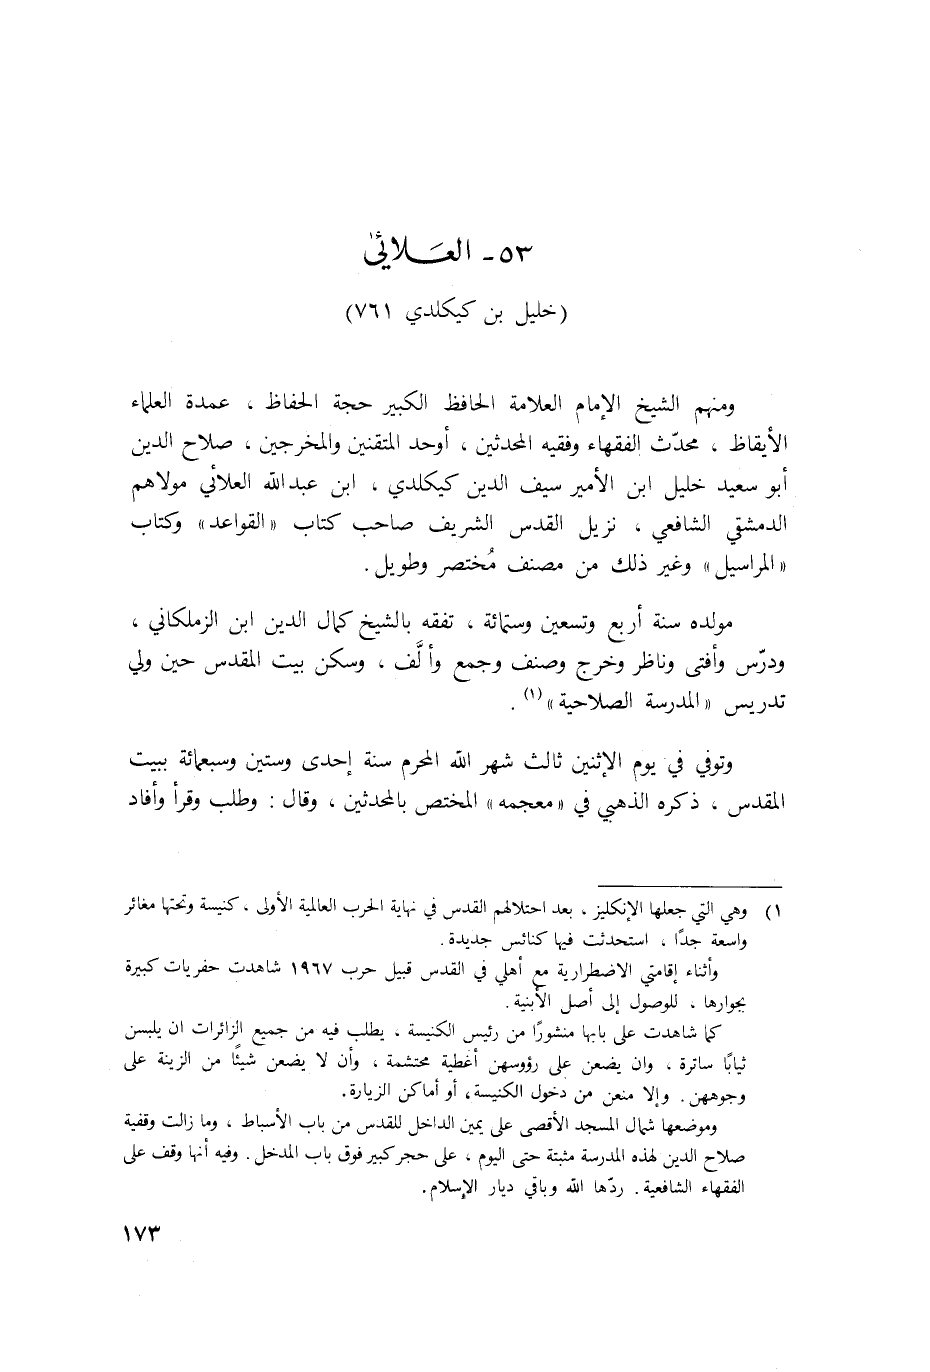 ٥٣ - العَلائيْ
(خليل بن كيكلدي ٧٦١)
ومنهم الشيخ الإمام العلامة الحافظ الكبير حجة الحفاظ ، عمدة العلماء
الأيقاظ ، محدّث الفقهاء وفقيه المحدثين ، أوحد المتقنين والمخرجين ، صلاح الدين
أبو سعيد خليل ابن الأمير سيف الدين كيكلدي ، ابن عبدالله العلائي مولاهم
الدمشقي الشافعي ، نزيل القدس الشريف صاحب كتاب «القواعد» وكتاب
«المراسيل» وغير ذلك من مصنف مُختصر وطويل .
مولده سنة أربع وتسعين وستمائة ، تفقه بالشيخ كمال الدين ابن الزملكاني ،
ودرّس وأفتى وناظر وخرج وصنف وجمع وألَّف ، وسكن بيت المقدس حين ولي
تدريس «المدرسة الصلاحية» (١) .
وتوفي في يوم الإثنين ثالث شهر الله المحرم سنة إحدى وستين وسبعمائة ببيت
المقدس ، ذكره الذهبي في «معجمه» المختص بالمحدثين ، وقال : وطلب وقرأ وأفاد
١) وهي التي جعلها الإنكليز ، بعد احتلالهم القدس في نهاية الحرب العالمية الأولى ، كنيسة وتحتها مغائر
واسعة جدًا ، استحدثت فيها كنائس جديدة .
وأثناء إقامتي الاضطرارية مع أهلي في القدس قبيل حرب ١٩٦٧ شاهدت حفريات كبيرة
بجوارها ، للوصول إلى أصل الأبنية .
كما شاهدت على بابها منشورًا من رئيس الكنيسة ، يطلب فيه من جميع الزائرات ان يلبسن
ثيابًا ساترة ، وان يضعن على رؤوسهن أغطية محتشمة ، وأن لا يضعن شيئًا من الزينة على
وجوههن . وإلا منعن من دخول الكنيسة ، أو أماكن الزيارة .
وموضعها شمال المسجد الأقصى على يمين الداخل للقدس من باب الأسباط ، وما زالت وقفية
صلاح الدين لهذه المدرسة مثبتة حتى اليوم ، على حجر كبير فوق باب المدخل . وفيه أنها وقف على
الفقهاء الشافعية . ردّها الله وباقي ديار الإسلام .
١٧٣